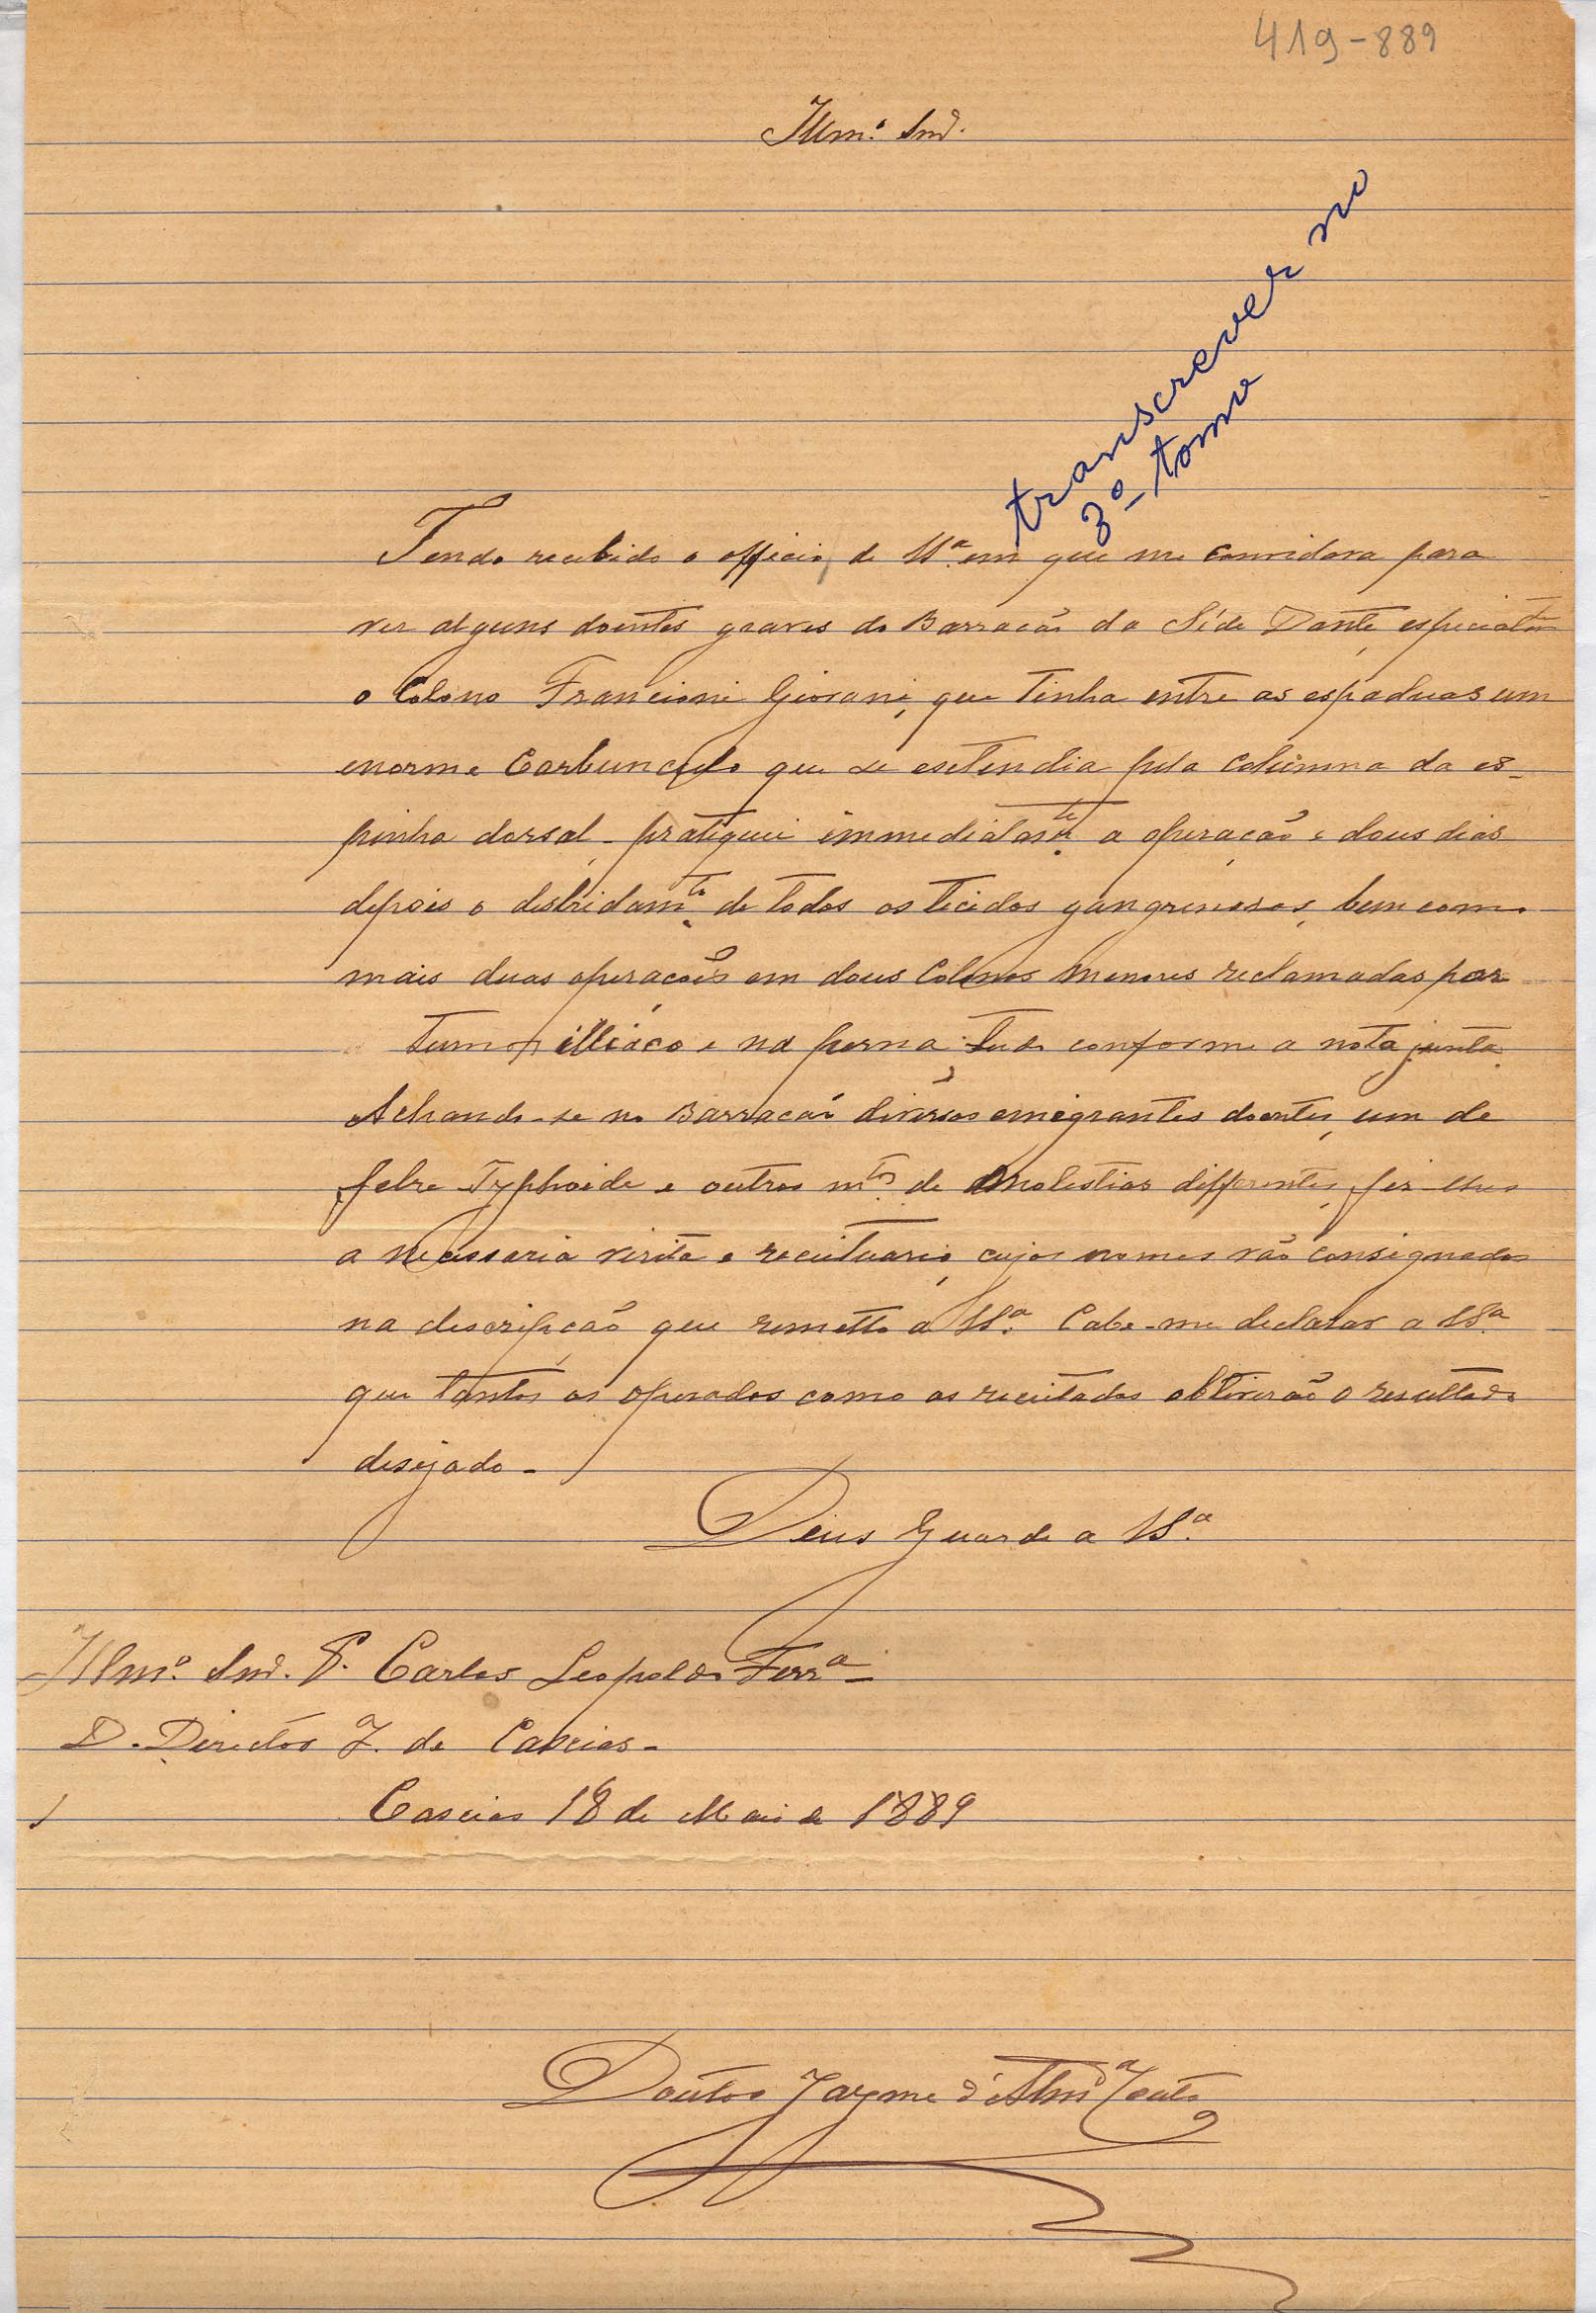 419-889
Illmº Snr.
transcrever no
3º tomo
Tendo recebido o officio, de VSª em que me convidara para
ver alguns doentes graves do Barracão da Séde Dante, especialmte
o Colono Francioni Giovani, que tinha entre as espaduas um
enorme Carbunculo que se estendia pela columna da es-
pinha dorsal - pratiquei immediatamte a operação e dous dias
depois o desbridamto de todos os tecidos gangrenosos, bem como
mais duas operacoẽs em dous Colonos menores reclamadas por
tumor illiaco e na perna tudo conforme a nota junta.
Achando-se no Barracão diversos emigrantes doentes, um de
febre Typhoide e outros mtos de molestias differentes, fiz
a necessaria visita e receituario, cujos nomes vão consignados
na descripção que remetto a VSª. Cabe-me declarar a VSª
que tantos os operados como os receitados obtiverão o resultado
desejado -
Deus Guarde a VSª
Illmº Snr. Carlos Leopoldo Ferrª
D. Director I. de Caxias -
Caxias 18 de Maio de 1889
Doutor Jayme d'Almda Couto